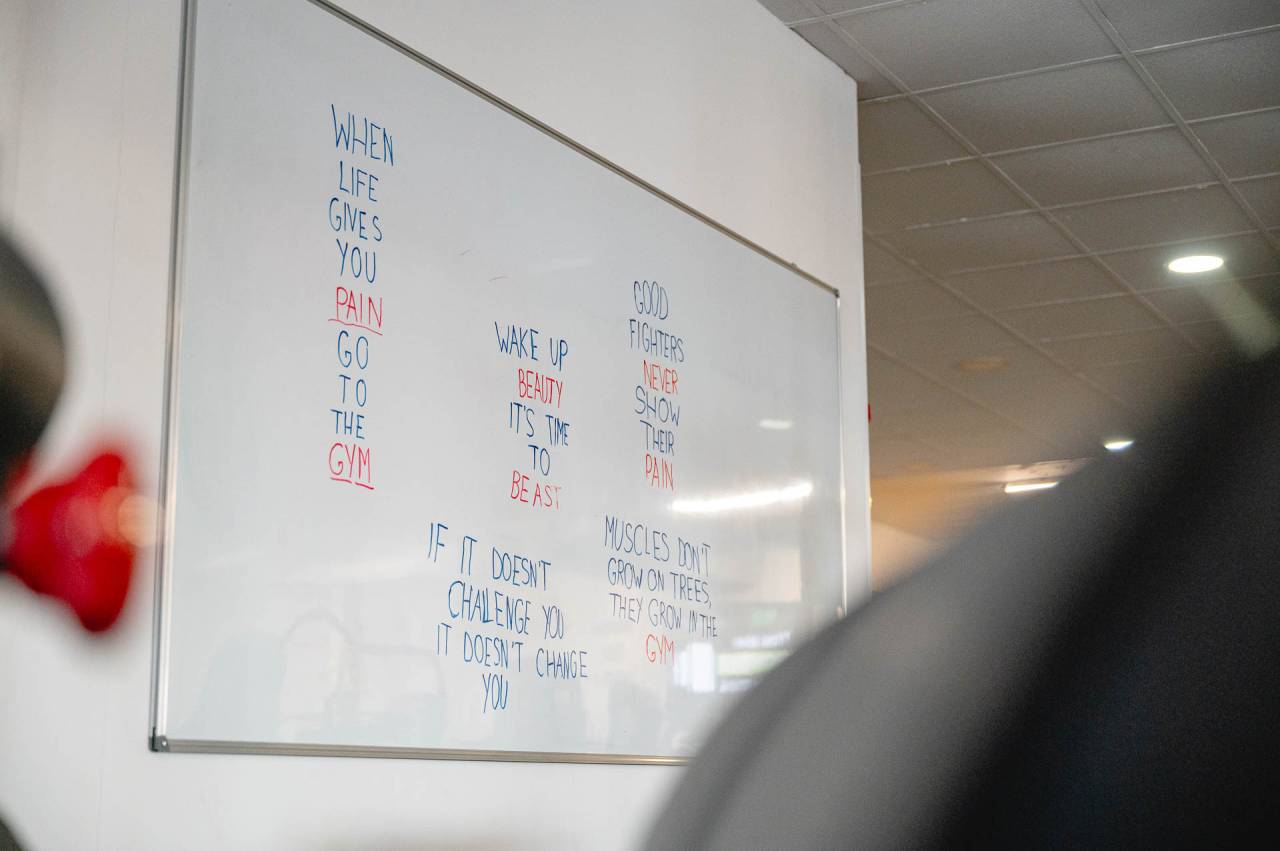 WHEN
LIFE
GIVES
YOU
PAIN
GO
TO
THE
GYM
WAKE UP
BEAUTY
IT'S TIME
TO
BEAST
GOOD
FIGHTERS
NEVER
SHOW
THEIR
PAIN
IF IT DOESN'T
CHALLENGE YOU
IT DOESN'T CHANGE
YOU
MUSCLES DON'T
GROW ON TREES,
THEY GROW IN THE
GYM